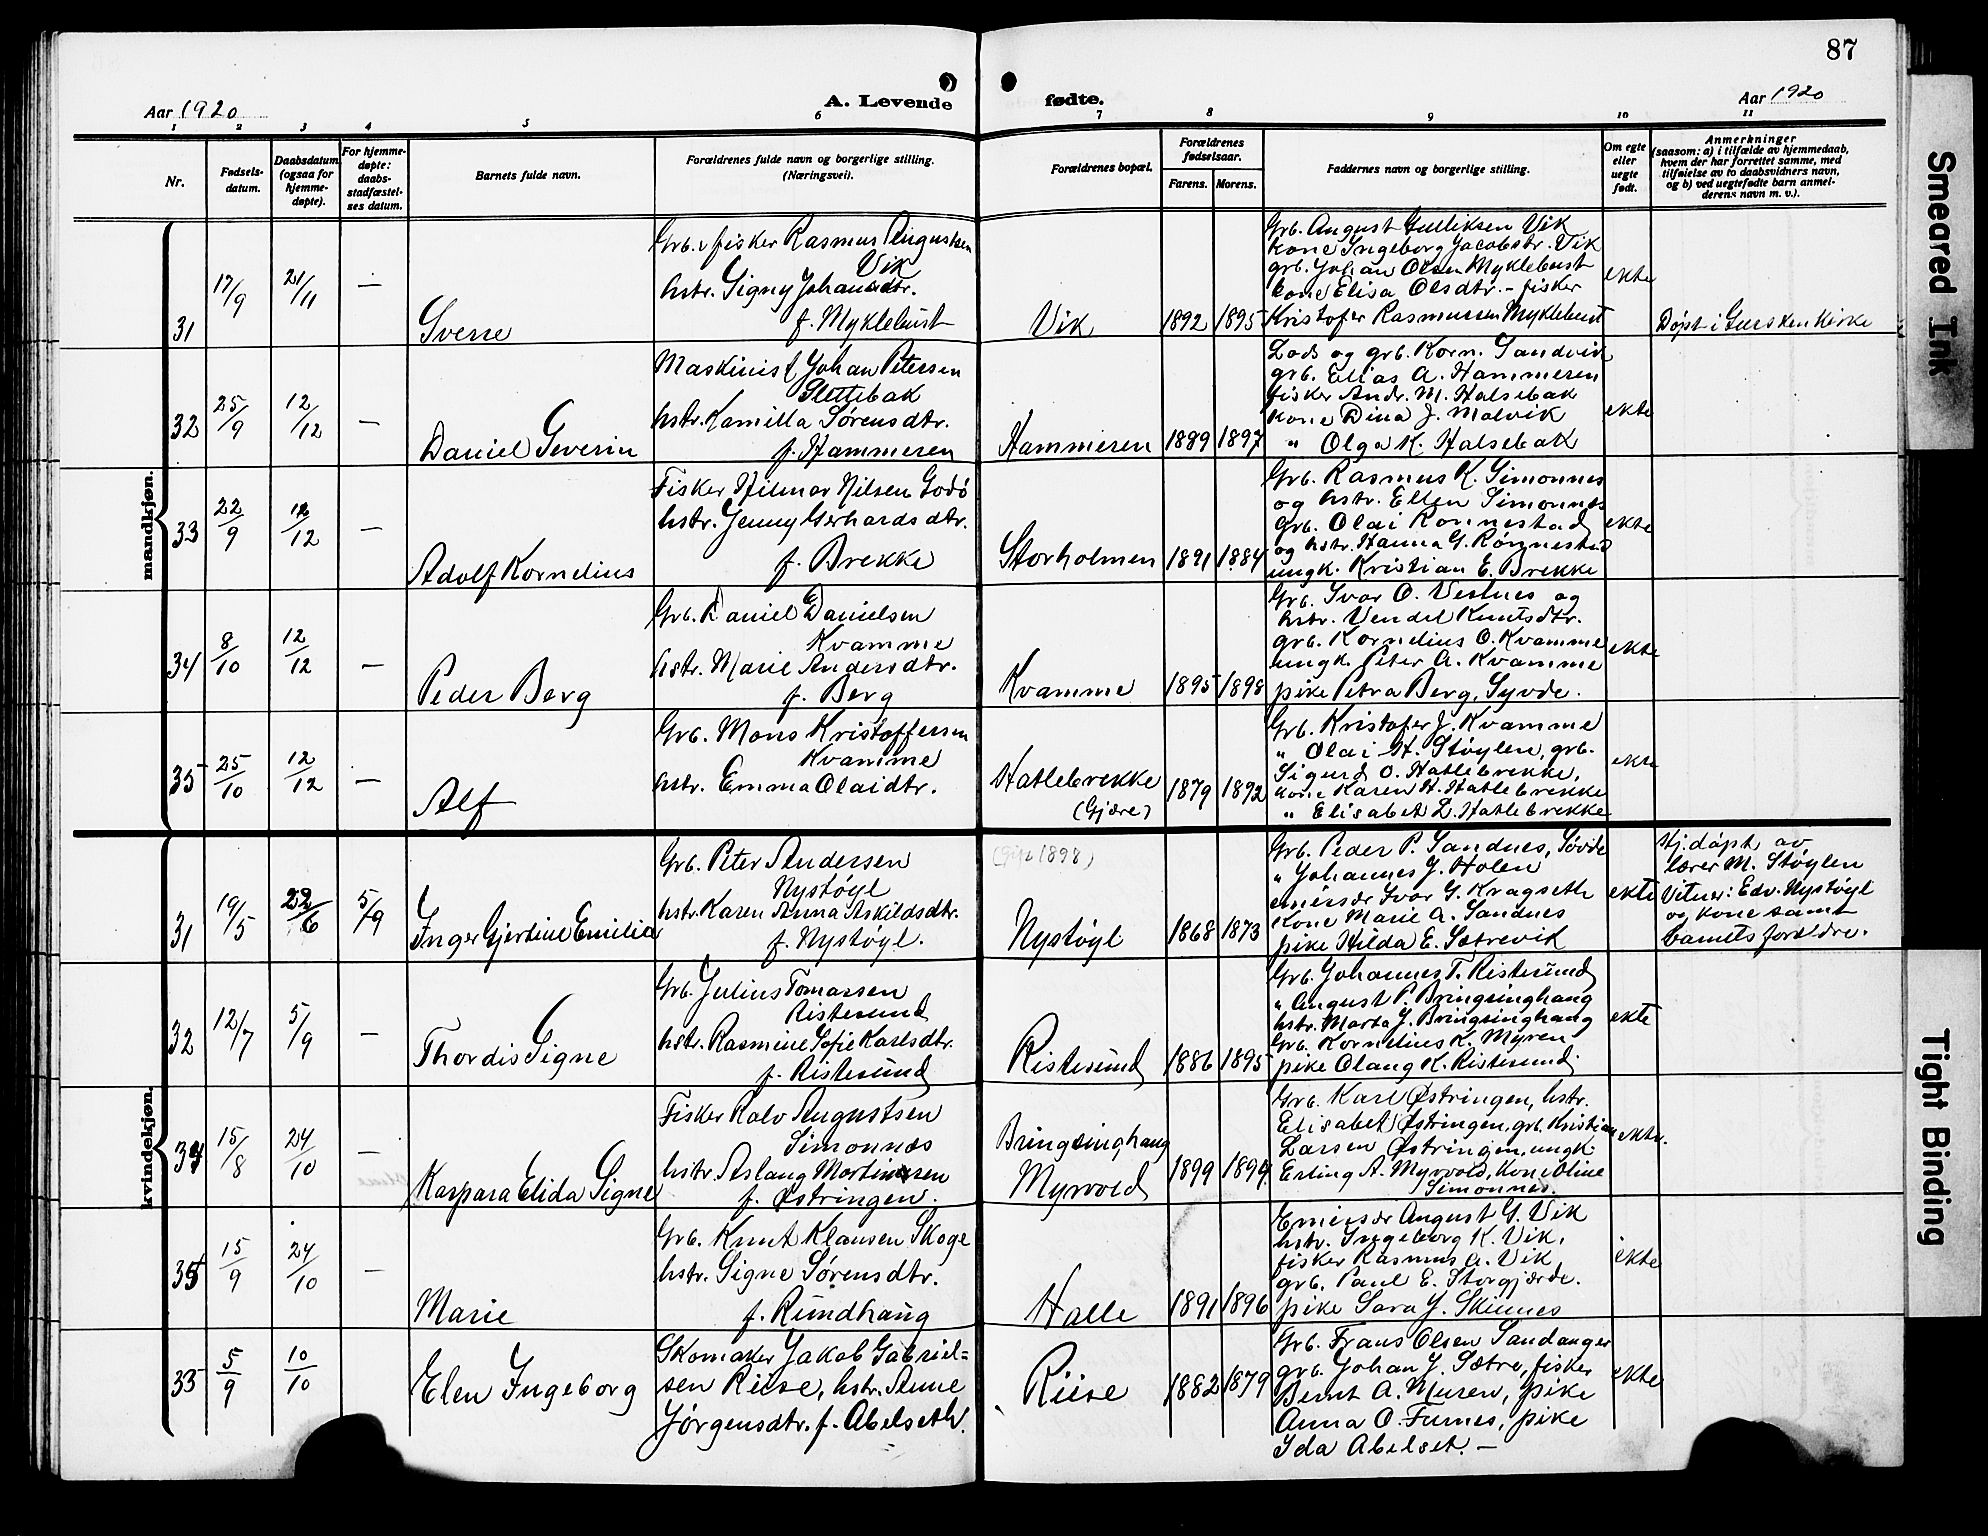 87
Aar 1920
A. Levende
fødte.
Aar 1920
1 2 3 4 5 6 7 8 9 10 11
Nr.
Fødsels-
datum.
Daabsdatum
(ogsaa for
hjemme-
døpte).
For hjemme-
døpte:
daabs-
stadfæstel-
ses datum.
Barnets fulde navn.
Forældrenes fulde navn og borgerlige stilling.
(Næringsvei).
Forældrenes bopæl.
Forældrenes
fødselsaar.
Farens. Morens.
Faddernes navn og borgerlige stilling.
Om egte
eller
uegte
født.
Anmerkninger
(saasom: a) i tilfælde av hjemmedaab,
hvem der har forrettet samme, med
tilføielse av to daabsvidners navn,
og b) ved uegtefødte barn anmel-
derens navn m. v.).
mandkjøn.
31
17/9
21/11
—
Sverre
Grb. fisker Rasmus Augustsen
Vik
hstr. Signy Johansdtr.
f. Myklebust
Vik
1892 1895
Grb. August Gulliksen Vik
kone Ingeborg Jacobsdtr. Vik
grb. Johan Olsen Myklebust
kone Elisa Olsdtr. - fisker
Kristofer Rasmussen Myklebust
ekte
Døpt i Gursken kirke
32
25/9
12/12
—
Daniel Severin
Maskinist Johan Petersen
Slettebak
hstr. Kamilla Sørensdtr.
f. Hammeren
Hammeren
1889 1897
Lods og grb. Korn. Sandvik
grb. Elias A. Hammeren
fisker Andr. M. Halsebak
kone Dina J. Malvik
" Olga K. Halsebak
ekte
33
22/9
12/12
—
Adolf Kornelius
Fisker Hilmar Nilsen Godø
hstr. Jenny Gerhardsdtr.
f. Brekke
Storholmen
1891 1884
Grb. Rasmus K. Simonnes
og hstr. Ellen Simonnes
grb. Olai Rønnestad
og hstr. Hanna G. Rønnestad
ungk. Kristian E. Brekke
ekte
34
8/10
12/12
—
Peder Berg
Grb. Daniel Danielsen
Kvamme
hstr. Marie Andersdtr.
f. Berg
Kvamme
1895 1898
Grb. Ivar O. Vestnes og
hstr. Vendel Knutsdtr.
grb. Kornelius O. Kvamme
ungk. Peter A. Kvamme
pike Petra Berg, Syvde.
ekte
35
25/10
12/12
—
Alf
Grb. Mons Kristoffersen
Kvamme
hstr. Emma Olaidtr.
Hatlebrekke
(Gjære)
1879 1892
Grb. Kristofer J. Kvamme
" Olai H. Støylen, grb.
Sigurd O. Hatlebrekke,
kone Karen H. Hatlebrekke
" Elisabet L. Hatlebrekke
ekte
kvindekjøn.
31
19/5
22/6
5/9
Inger Gjertine Emilia
Grb. Peter Andersen
Nystøyl
hstr. Karen Anna Askildsdtr.
f. Nystøyl.
(Gift 1898)
Nystøyl
1868 1873
Grb. Peder P. Sandnes, Søvde
" Johannes J. Holen
emissær Ivar G. Kragseth
Kone Marie A. Sandnes
pike Hilda E. Sætrevik
ekte
Hj.døpt av
lærer M. Støylen
Vitner: Edv. Nystøyl
og kone samt
barnets forældre.
32
12/7
5/9
—
Thordis Signe
Grb. Julius Tomassen
Ristesund
hstr. Rasmine Sofie Karlsdtr.
f. Ristesund
Ristesund
1886 1895
Grb. Johannes T. Ristesund
" August P. Bringsinghaug
hstr. Marta J. Bringsinghaug
Grb. Kornelius K. Myren
pike Olaug K. Ristesund
ekte
34
15/8
24/10
—
Kaspara Elida Signe
Fisker Kalv Augustsen
Simonnæs
hstr. Aslaug Martinussen
f. Østringen.
Bringsinghaug
Myrvold
1899 1899
Grb. Karl Østringen, hstr.
Elisabet Østringen, grb. Kristian
Larsen Østringen, ungk.
Erling A. Myrvold, kone Oline
Simonnes.
ekte.
35
15/9
24/10
—
Marie
Grb. Knut Klausen Skoge
hstr. Signe Sørensdtr.
f. Rundhaug
Halle
1891 1896
Emissær August G. Vik
hstr. Ingeborg K. Vik,
fisker Rasmus A. Vik
grb. Paul E. Storgjærde.
pike Sara J. Skinnes
ekte
33
5/9
10/10
Elen Ingeborg
Skomaker Jakob Gabriel-
sen Riise, hstr. Anne
Jørgensdtr. f. Abelseth.
Riise
1882 1879
Grb. Frans Olsen Sandanger
grb. Johan J. Sætre, fisker
Bernt A. Muren, pike
Anna O. Furnes, pike
Ida Abelset. —
ekte
Smeared Ink
Tight Binding